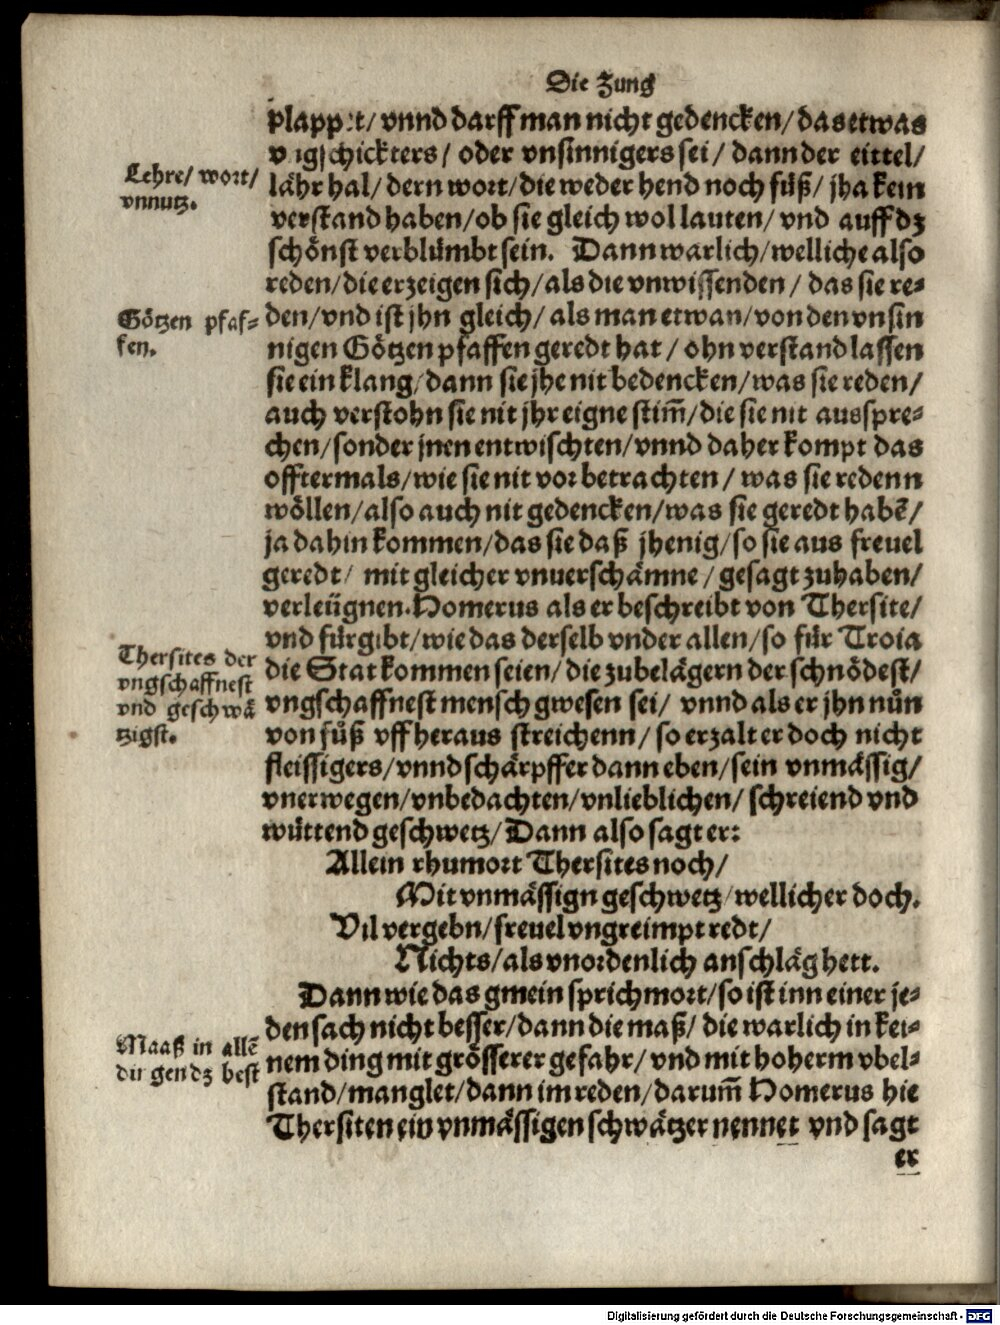 Die Zung
plappet/ vnnd darff man nicht gedencken/ das etwas
vngschickters/ oder vnsinnigers sei/ dann der eittel/
Lehre/ wort/
vnnutz.
lähr hal/ dern wort/ die weder hend noch füß/ jha kein
verstand haben/ ob sie gleich wol lauten/ vnd auff dz
schönst verblümbt sein. Dann warlich/ welliche also
reden/ die erzeigen sich/ als die vnwissenden/ das sie re⸗
Götzen pfaf⸗
fen.
den/ vnd ist jhn gleich/ als man etwan/ von den vnsin
nigen Götzen pfaffen geredt hat/ ohn verstand lassen
sie ein klang/ dann sie jhe nit bedencken/ was sie reden/
auch verstohn sie nit jhr eigne stim̃/ die sie nit ausspre⸗
chen/ sonder jnen entwischten/ vnnd daher kompt das
offtermals/ wie sie nit vor betrachten/ was sie redenn
wöllen/ also auch nit gedencken/ was sie geredt habẽ/
ja dahin kommen/ das sie daß jhenig/ so sie aus freuel
geredt/ mit gleicher vnuerschämne/ gesagt zuhaben/
verleügnen. Homerus als er beschreibt von Thersite/
vnd fürgibt/ wie das derselb vnder allen/ so für Troia
Thersites der
vngschaffnest
vnd geschwä
tzigst.
die Stat kommen seien/ die zubelägern der schnödest/
vngschaffnest mensch gwesen sei/ vnnd als er jhn nůn
von füß vff heraus streichenn/ so erzalt er doch nicht
fleissigers/ vnnd schärpffer dann eben/ sein vnmässig/
vnerwegen/ vnbedachten/ vnlieblichen/ schreiend vnd
wüttend geschwetz/ Dann also sagt er:
Allein rhumort Thersites noch/
Mit vnmässign geschwetz/ wellicher doch.
Vil vergebn/ freuel vngreimpt redt/
Nichts/ als vnordenlich anschläg hett.
Dann wie das gmein sprichwort/ so ist inn einer je⸗
den sach nicht besser/ dann die maß/ die warlich in kei⸗
Maaß in allẽ
dingen dz best
nem ding mit grösserer gefahr/ vnd mit hoherm vbel⸗
stand/ manglet/ dann im reden/ darum̃ Homerus hie
Thersiten ein vnmässigen schwätzer nennet vnd sagt
er
Digitalisierung gefördert durch die Deutsche Forschungsgemeinschaft - DFG